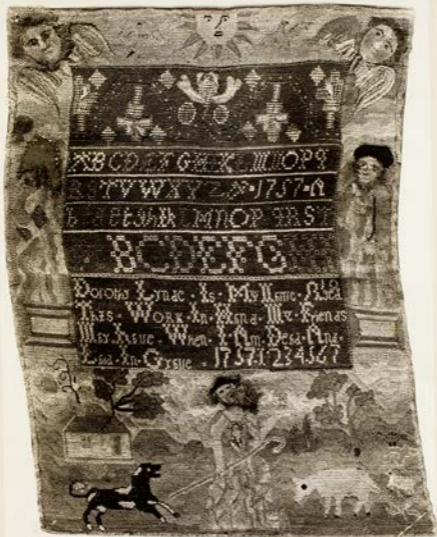 ABCDEFGHIKLMNOPQ
RSTUVWXYZ · 1757 · A
MNOP QRST
BCDEFG
Dorothy Lynde · Is · My Name · And
This · Work · In · Hand · My · Friends
May · Have · When · I · Am · Dead · And ·
Laid · In · Grave · 1757 · 1234567